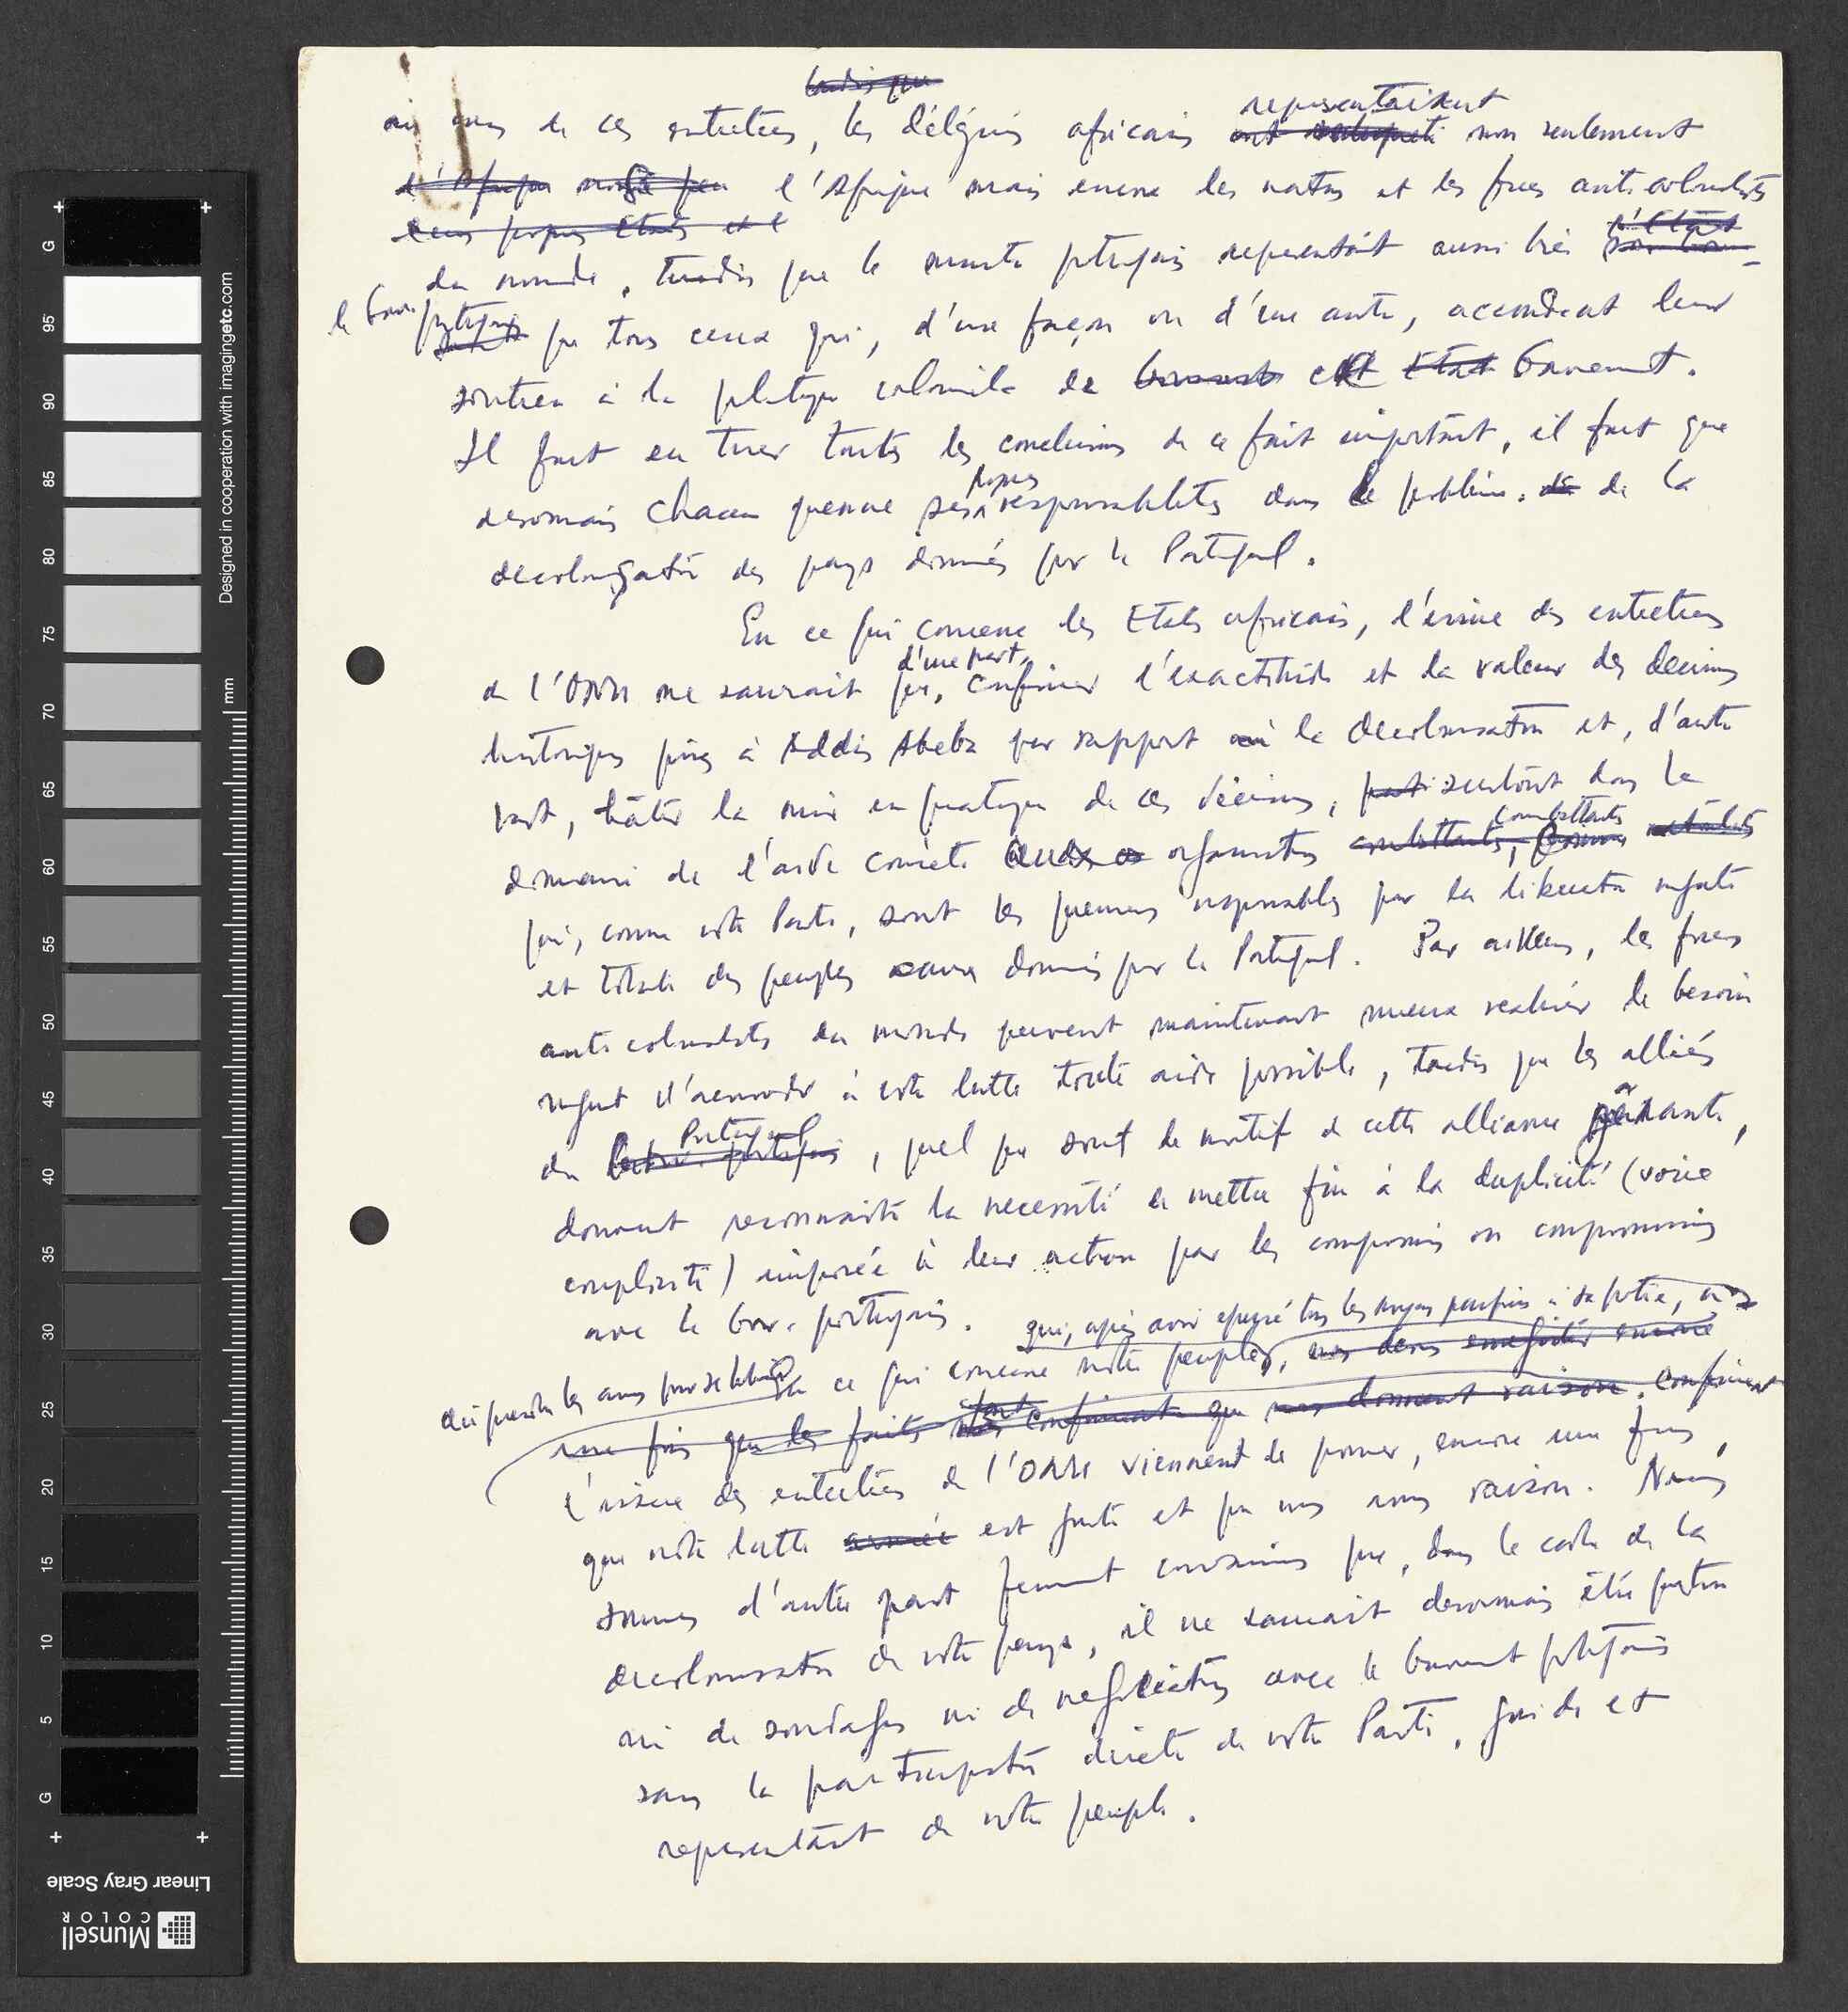 tandis que
représentaient
au cours de ces entretiens, les délégués africains ont non seulement
d'Afrique l'Afrique mais encore les nations et les forces anticolonialistes
leurs propres Etats et l
l'Etat
du monde, tandis que le ministre portugais représentait aussi bien
le Gouv. portugais que tous ceux qui, d'une façon ou d'une autre, accordent leur
soutien à la politique coloniale de cet Etat Gouvernement.
Il faut en tirer toutes les conclusions de ce fait important, il faut que
propres
desormais chacun prenne ses responsabilités dans le problème de la
decolonisation des pays dominés par le Portugal.
En ce qui concerne les Etats africains, l'issue des entretiens
d'une part,
de l'ONU ne saurait que, confirmer l'exactitude et la valeur des decisions
historiques prises à Addis Abeba par rapport à la decolonisation et, d'autre
part, hâter la mise en pratique de ces décisions, surtout dans le
combattants
domaine de l'aide concrète aux organisations combattants,
qui, comme notre Parti, sont les premiers responsables par la liberation urgente
et totale des peuples dominés par le Portugal. Par ailleurs, les forces
anticolonialistes du monde peuvent maintenant mieux realiser le besoin
urgent d'accorder à notre lutte toute aide possible, tandis que les alliés
Portugal
du Gouv. portugais, quel que soit le motif de cette alliance gênante,
doivent reconnaitre la necessité de mettre fin à la duplicité (voire
complicité) imposée à leur action par les compromis ou compromissions
avec le Gouv. portugais.
qui, après avoir epuisé tous les moyens pacifiques à sa portée, a
dû prendre les armes pour se libérer
En ce qui concerne notre peuple, encore
une fois que les faits confirment que nous donnent raison. confirment
l'issue des entretiens de l'ONU viennent de prouver, encore une fois,
que notre lutte armée est juste et que nous avons raison. Nous
sommes d'autre part fermement convaincus que, dans le cadre de la
decolonisation de notre pays, il ne saurait desormais être question
ni de sondages ni de negociations avec le Gouvernement portugais
sans la participation directe de notre Parti, guide et
representant de notre peuple.
G
95
90
85
80
75
70
65
60
55
50
45
40
35
30
25
20
15
10
5
G
mm
Designed in cooperation with imagingetc.com
Linear Gray Scale
Munsell
COLOR